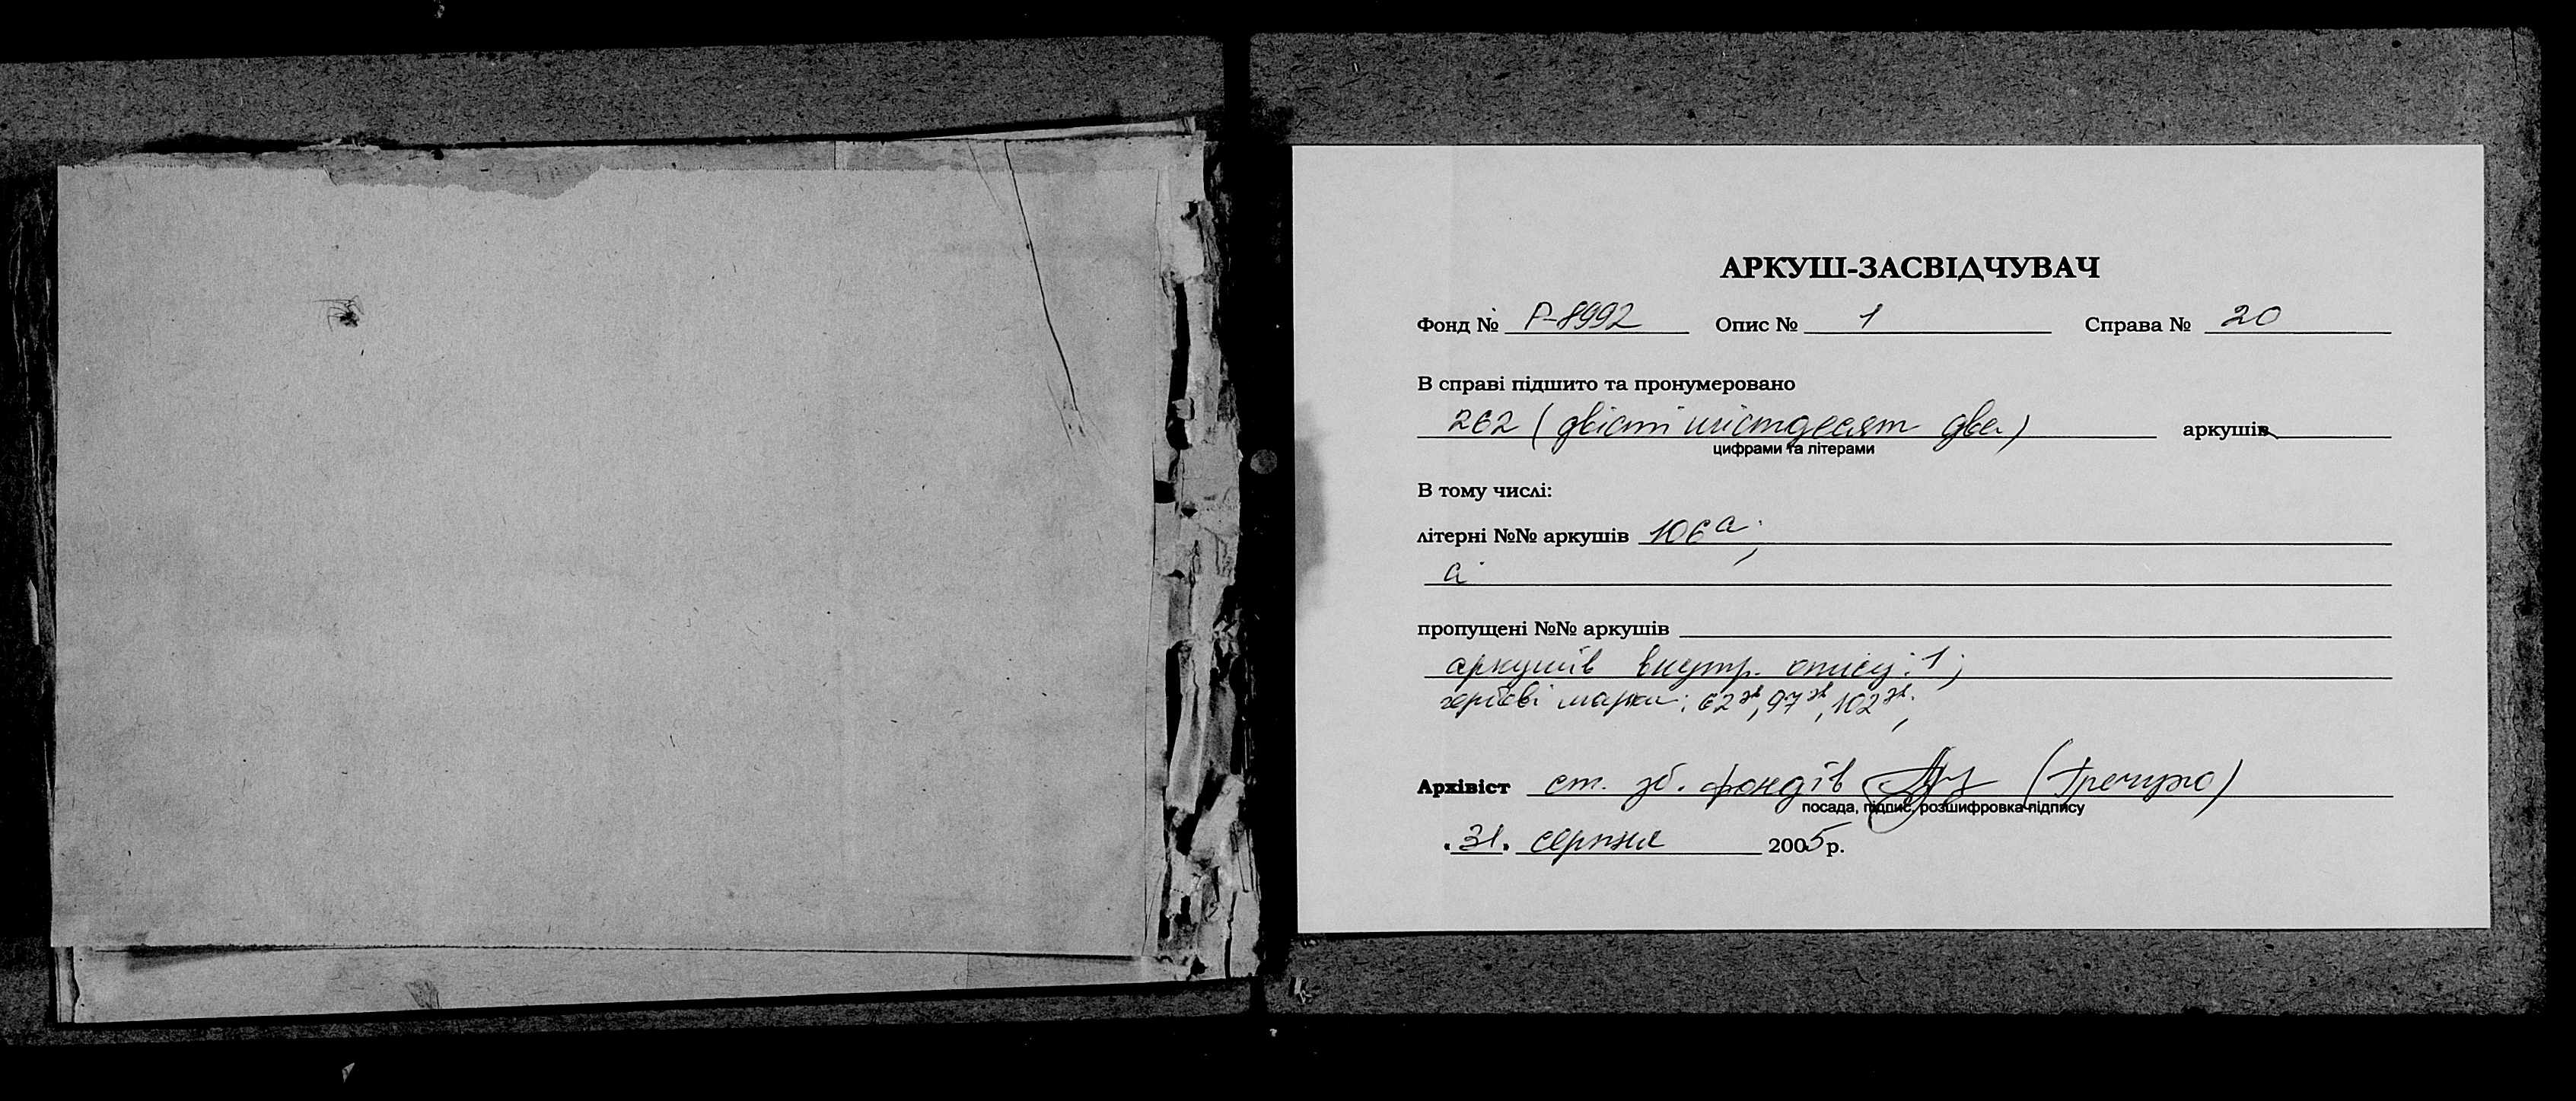 АРКУШ-ЗАСВІДЧУВАЧ
Фонд № Р-8992 Опис № 1 Справа № 20
В справі підшито та пронумеровано
262 (двісті шістдесят два) аркушів
цифрами та літерами
В тому числі:
літерні №№ аркушів 106а;
а
пропущені №№ аркушів
аркушів внутр. опису: 1;
гербові марки: 62зв, 97зв, 102зв;
Архівіст ст. зб. фондів (Гречухо)
посада, підпис, розшифровка підпису
"31" серпня 2005 р.